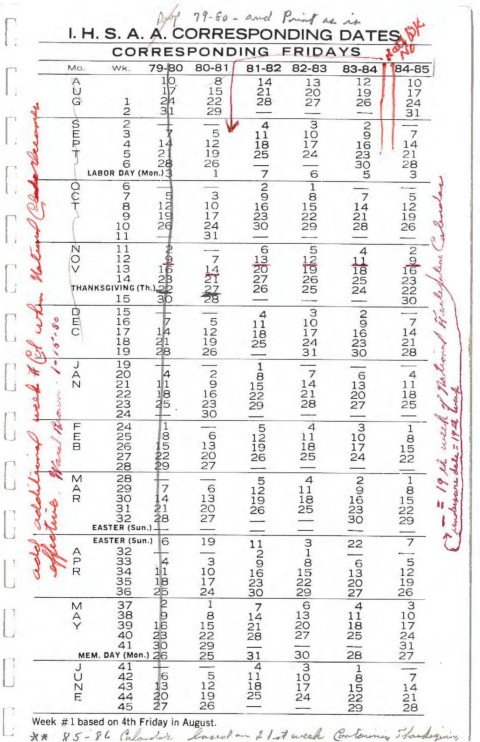 Drop 79-80 - and Print as is
I. H. S. A. A. CORRESPONDING DATES
CORRESPONDING FRIDAYS
Mo. Wk. 79-80 80-81 81-82 82-83 83-84 84-85
A 10 8 14 13 12 10
U 17 15 21 20 19 17
G 1 24 22 28 27 26 24
2 31 29 — — — 31
S 2 — — 4 3 2 —
E 3 7 5 11 10 9 7
P 4 14 12 18 17 16 14
T 5 21 19 25 24 23 21
6 28 26 — — 30 28
LABOR DAY (Mon.) 3 1 7 6 5 3
O 6 — — 2 1 — —
C 7 5 3 9 8 7 5
T 8 12 10 16 15 14 12
9 19 17 23 22 21 19
10 26 24 30 29 28 26
11 — 31 — — — —
N 11 2 — 6 5 4 2
O 12 9 7 13 12 11 9
V 13 16 14 20 19 18 16
14 23 21 27 26 25 23
THANKSGIVING (Th.) 22 27 26 25 24 22
15 30 28 — — — 30
D 15 — — 4 3 2 —
E 16 7 5 11 10 9 7
C 17 14 12 18 17 16 14
18 21 19 25 24 23 21
19 28 26 — 31 30 28
J 19 — — 1 — — —
A 20 4 2 8 7 6 4
N 21 11 9 15 14 13 11
22 18 16 22 21 20 18
23 25 23 29 28 27 25
24 — 30 — — — —
F 24 1 — 5 4 3 1
E 25 8 6 12 11 10 8
B 26 15 13 19 18 17 15
27 22 20 26 25 24 22
28 29 27 — — — —
M 28 — — 5 4 2 1
A 29 7 6 12 11 9 8
R 30 14 13 19 18 16 15
31 21 20 26 25 23 22
32 28 27 — — 30 29
EASTER (Sun.) — — — — — —
EASTER (Sun.) 6 19 11 3 22 7
A 32 — — 2 1 — —
P 33 4 3 9 8 6 5
R 34 11 10 16 15 13 12
35 18 17 23 22 20 19
36 25 24 30 29 27 26
M 37 2 1 7 6 4 3
A 38 9 8 14 13 11 10
Y 39 16 15 21 20 18 17
40 23 22 28 27 25 24
41 30 29 — — — 31
MEM. DAY (Mon.) 26 25 31 30 28 27
J 41 — — 4 3 1 —
U 42 6 5 11 10 8 7
N 43 13 12 18 17 15 14
E 44 20 19 25 24 22 21
45 27 26 — — 29 28
Week #1 based on 4th Friday in August.
** 85-86 Calendar based on 21st week Containing Thanksgiving
add additional week # Col when National becomes
effective. Ward Brown 1-15-80
= 19th week of National Calendar